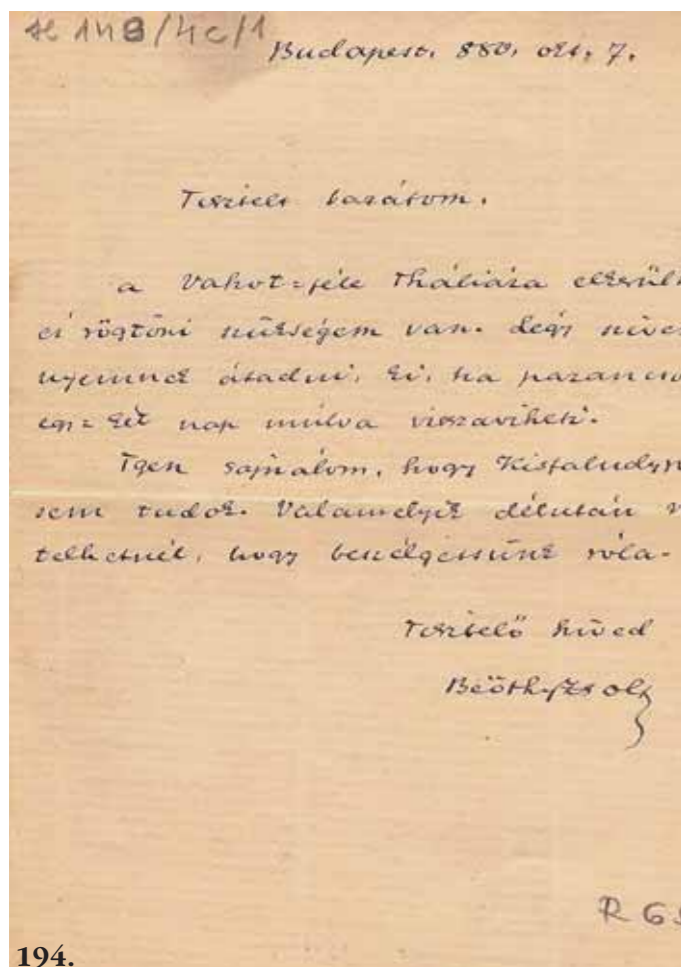 H 148/4c/1
Budapest. 880. okt. 7.
Tisztelt barátom.
a Vahot-féle Tháliára elkerülh
és rögtöni szükségem van. Légy szíves
nyemnek átadni. Ki, ha parancso
egy-két nap múlva visszaviheti.
Igen sajnálom, hogy Kisfaludyr
sem tudok. Valamelyik délután
telhetnél, hogy beszélgessünk róla.
Tisztelő híved
Beöthy Zsolt
R 6
194.